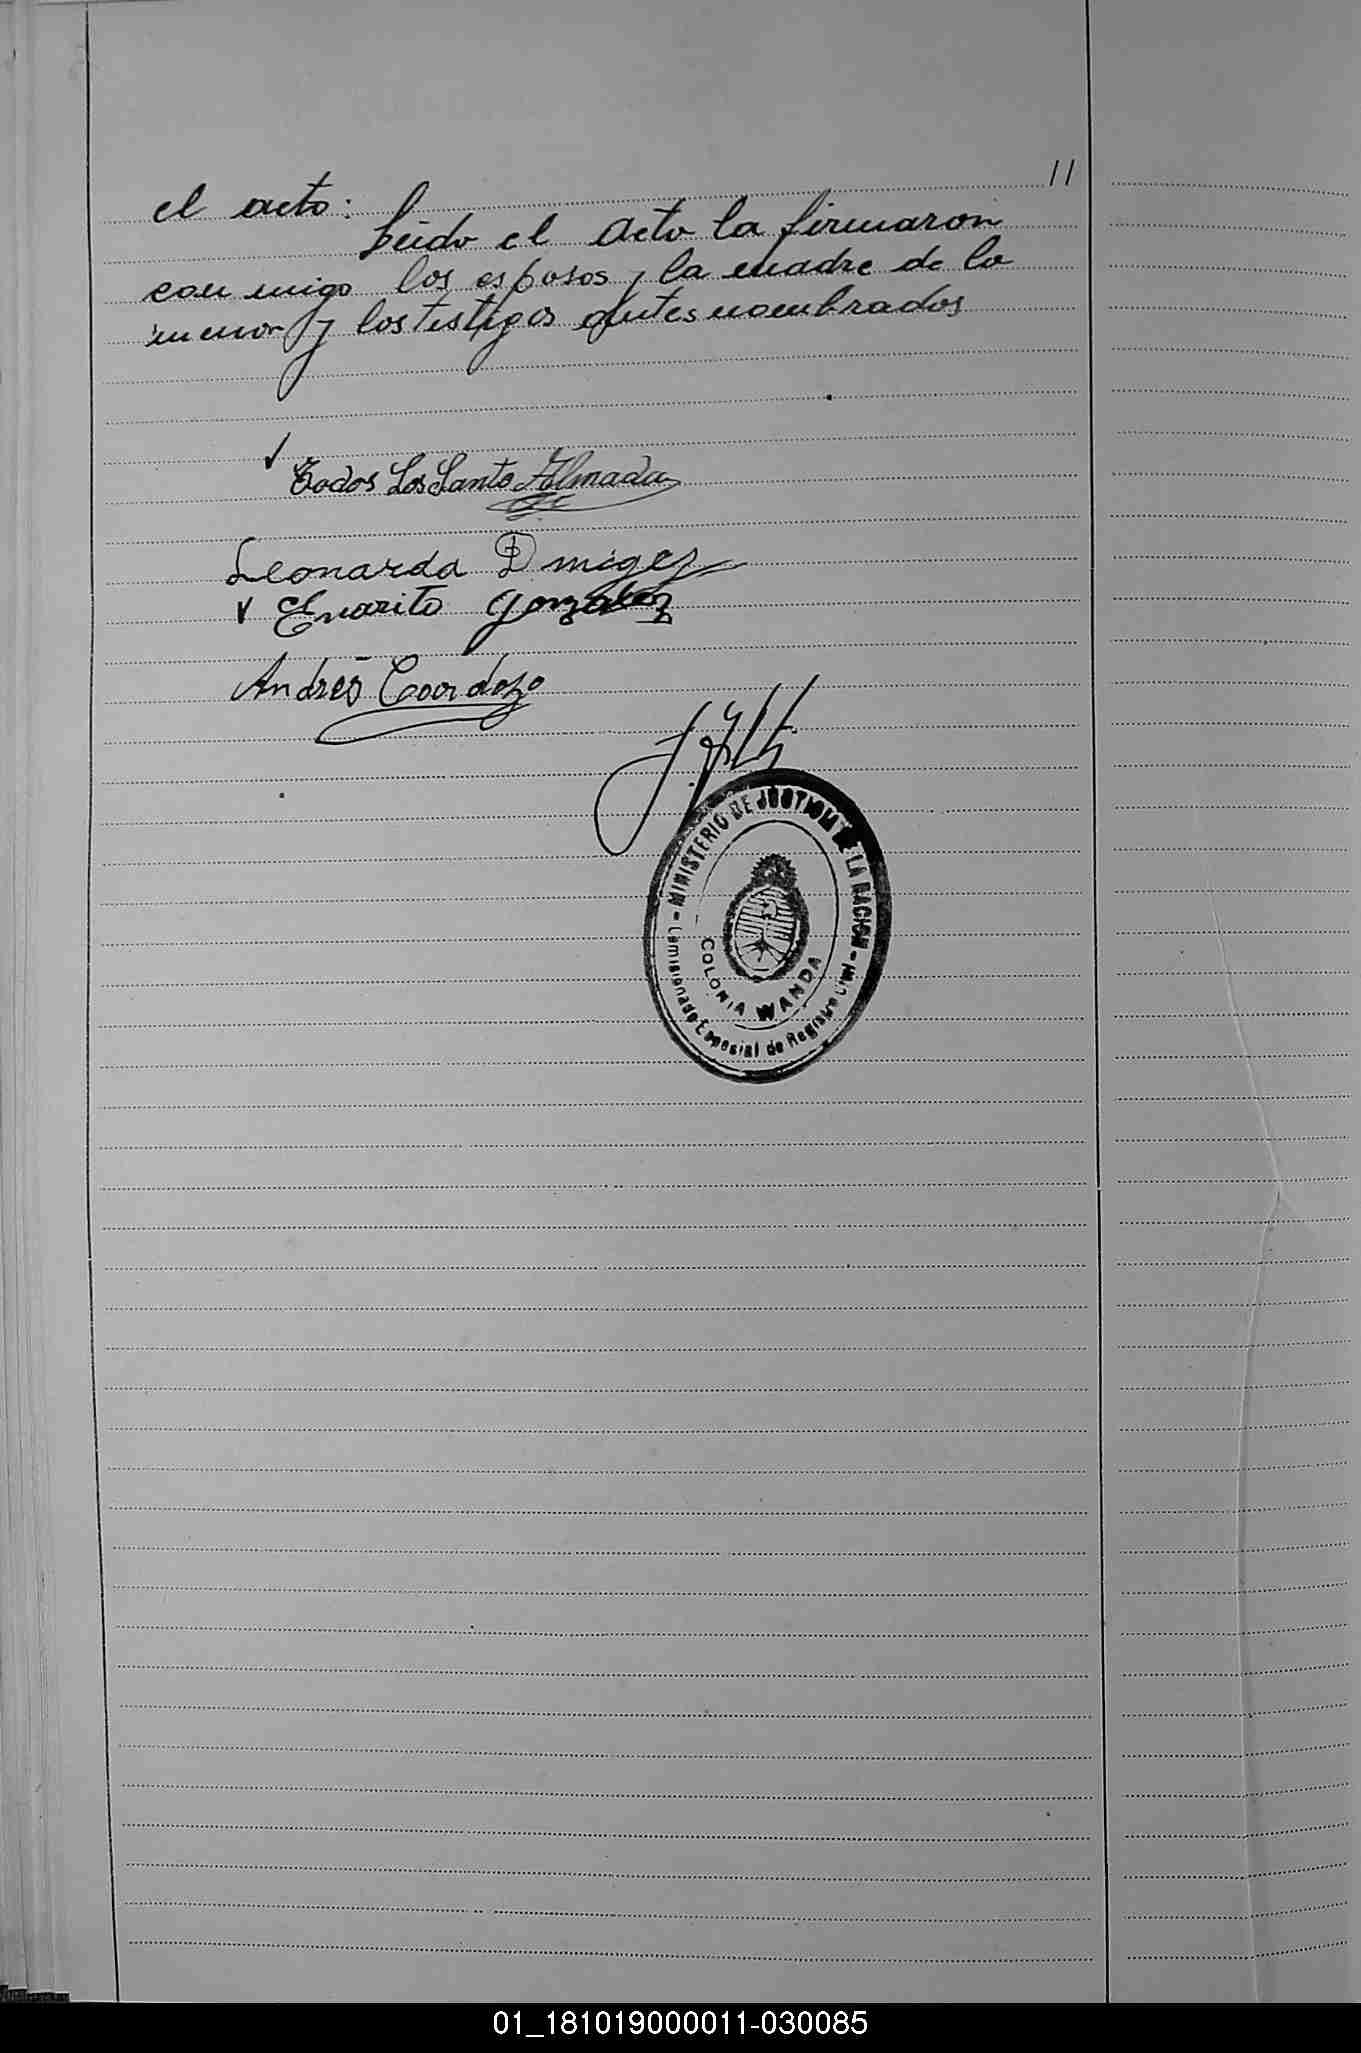 11
el acto:
Leido el acto la firmaron
con migo los esposos, la madre de la
menor y los testigos antes nombrados
Todos Los Santo Almada
Leonarda D miges
Evarito Gonzalez
Andrés Coordozo
- MINISTERIO DE JUSTICIA DE LA NACION -
Comisionado Especial de Registro Civil
COLONIA WANDA
01_181019000011-030085